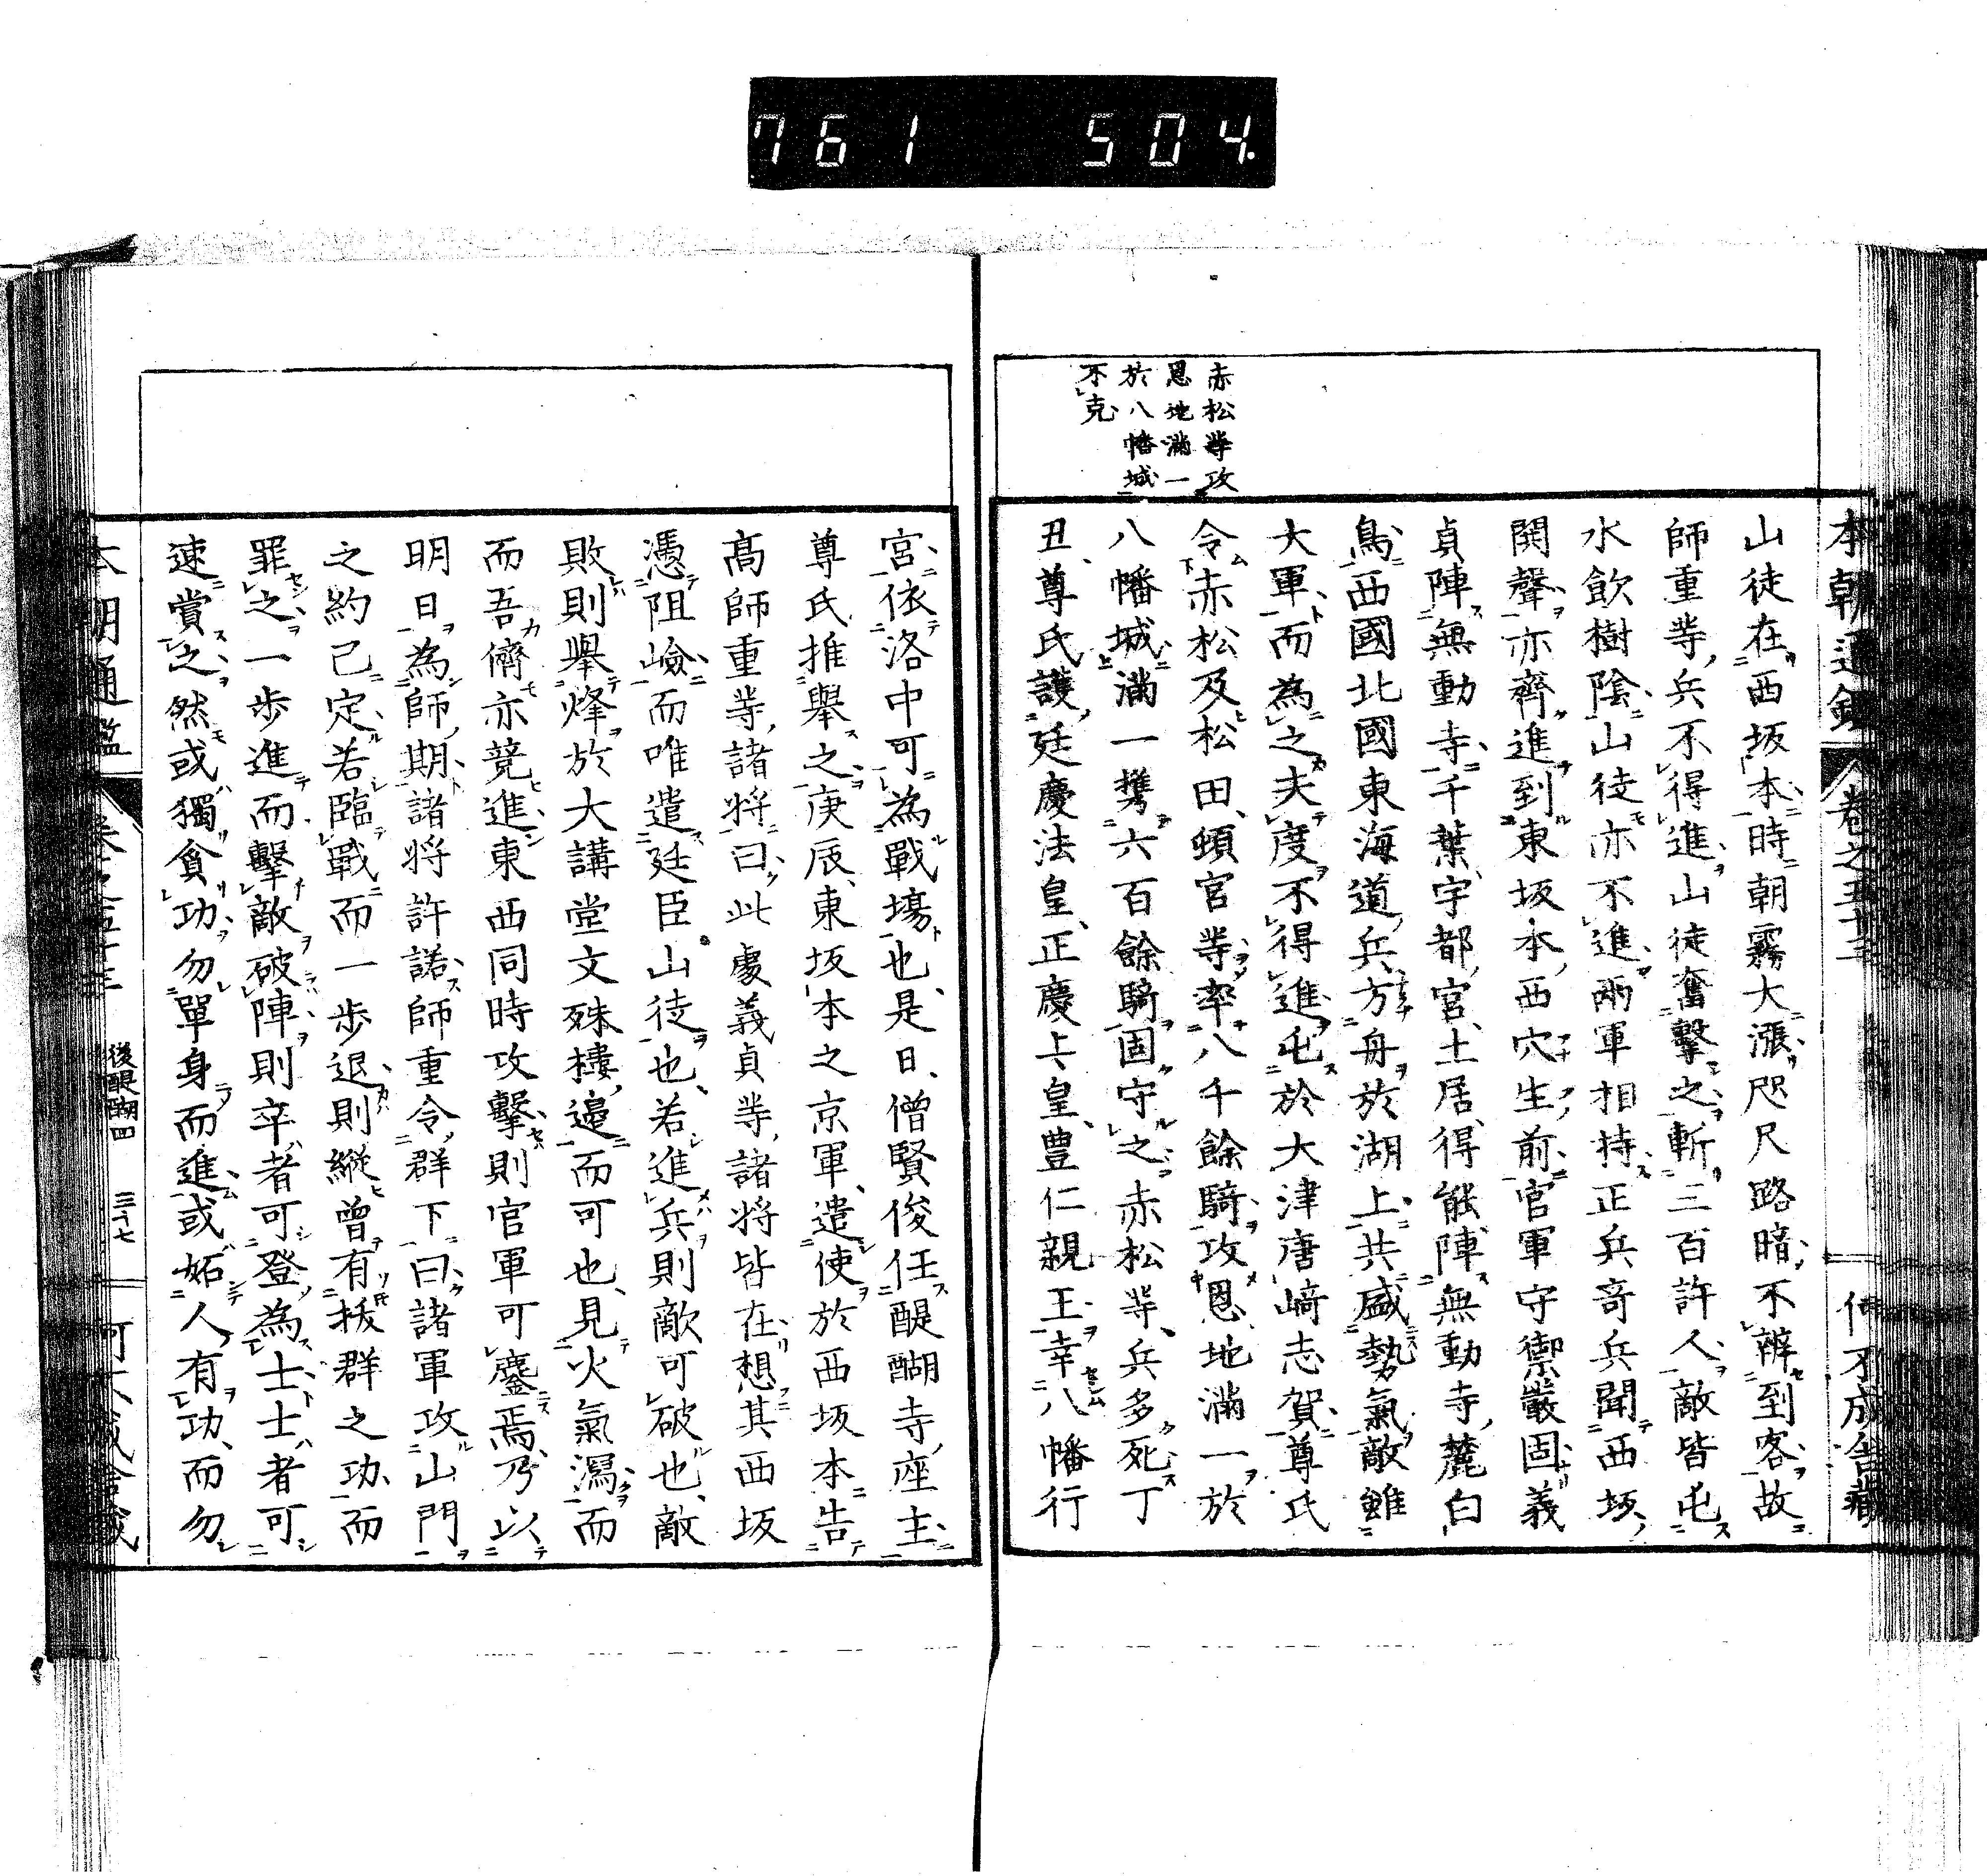 761 504.
本朝通鑑 卷之五十三 何不成舎藏
赤松䓁攻
恩地滿一
於八幡城
不克
山徒在西坂本時朝霧大漲咫尺路暗不辨到客故
師重䓁兵不得進山徒奮擊之斬三百許人敵皆屯
水飲樹陰山徒亦不進兩軍相持正兵奇兵聞西坂
鬨聲亦齊進到東坂本西穴生前官軍守禦嚴固義
貞陣無動寺千葉宇都宮土居得能陣無動寺麓白
鳥西國北國東海道兵方舟於湖上共盛勢氣敵雖
大軍而為之夫度不得進屯於大津唐﨑志賀尊氏
令赤松及松田頓宮䓁率八千餘騎攻恩地滿一於
八幡城滿一携六百餘騎固守之赤松䓁兵多死丁
丑尊氏護廷慶法皇正慶上皇豊仁親王幸八幡行
宮依洛中可為戰場也是日僧賢俊任醍醐寺座主
尊氏推舉之庚辰東坂本之京軍遣使於西坂本告
髙師重䓁諸将曰此處義貞䓁諸将皆在想其西坂
憑阻嶮而唯遣廷臣山徒也若進兵則敵可破也敵
敗則舉烽於大講堂文殊樓邉而可也見火氣瀉而
而吾儕亦競進東西同時攻擊則官軍可鏖焉乃以
明日為師期諸将許諾師重令群下曰諸軍攻山門
之約已定若臨戰而一歩退則縱曾有拔群之功而
罪之一歩進而擊敵破陣則卒者可登為士士者可
速賞之然或獨貪功勿單身而進或妬人有功而勿
本朝通鑑 卷之五十三 後醍醐四 三十七 何不成舎藏